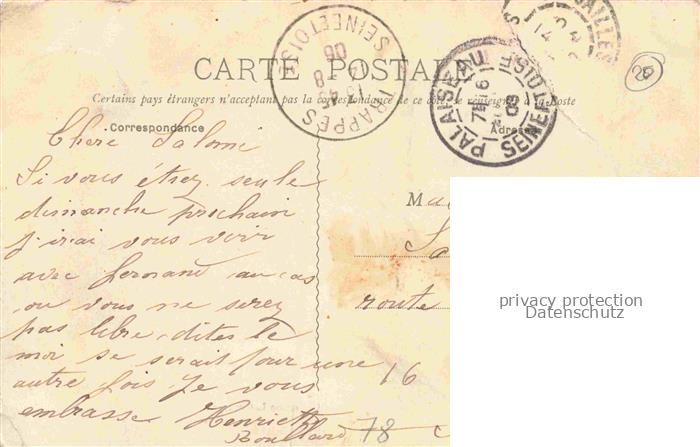 CARTE POSTALE
Certains pays étrangers n'acceptant pas la correspondance de ce côté, se renseigner à la Poste
Correspondance
Adresse
TRAPPES
15 45
8
06
SEINE ET OISE
PALAISEAU
7E 16
09
SEINE ET OISE
20
Chere Salomé
Si vous étrez seule
dimanche prochain
j'irai vous voir
avec fernand au cas
ou vous ne serez
pas libre dites le
moi se serait pour une
autre fois Je vous
embrasse Henriette
Ma
route
16
78
privacy protection
Datenschutz